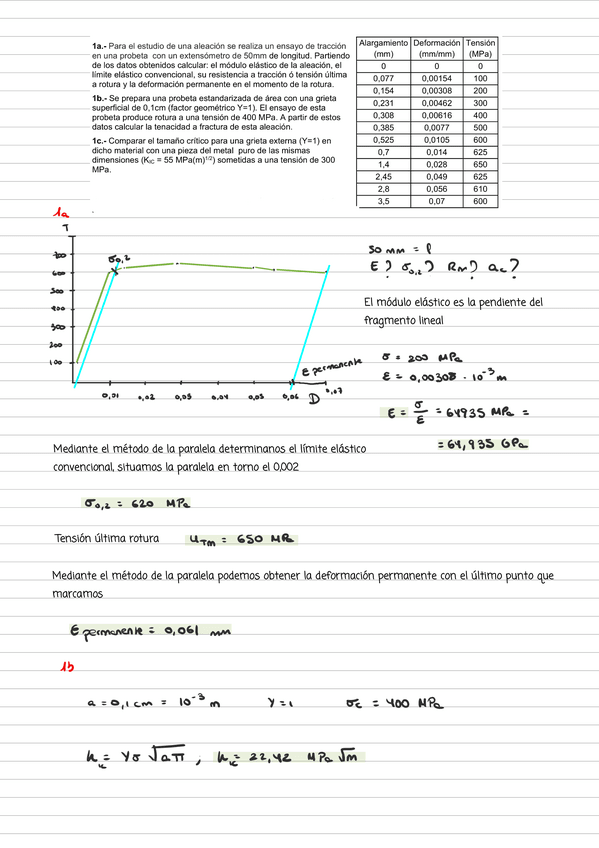 1a.- Para el estudio de una aleación se realiza un ensayo de tracción
en una probeta con un extensómetro de 50mm de longitud. Partiendo
de los datos obtenidos calcular: el módulo elástico de la aleación, el
límite elástico convencional, su resistencia a tracción ó tensión última
a rotura y la deformación permanente en el momento de la rotura.
1b.- Se prepara una probeta estandarizada de área con una grieta
superficial de 0,1cm (factor geométrico Y=1). El ensayo de esta
probeta produce rotura a una tensión de 400 MPa. A partir de estos
datos calcular la tenacidad a fractura de esta aleación.
1c.- Comparar el tamaño crítico para una grieta externa (Y=1) en
dicho material con una pieza del metal puro de las mismas
dimensiones (KIC = 55 MPa(m)1/2) sometidas a una tensión de 300
MPa.
Alargamiento Deformación Tensión
(mm) (mm/mm) (MPa)
0 0 0
0,077 0,00154 100
0,154 0,00308 200
0,231 0,00462 300
0,308 0,00616 400
0,385 0,0077 500
0,525 0,0105 600
0,7 0,014 625
1,4 0,028 650
2,45 0,049 625
2,8 0,056 610
3,5 0,07 600
1a
T
700
600
500
400
300
200
100
σ0,2
E permanente
0,01 0,02 0,03 0,04 0,05 0,06 D 0,07
50 mm = l
E? σ0,2? Rm? ac?
El módulo elástico es la pendiente del
fragmento lineal
σ = 200 MPa
ε = 0,00308 · 10-3 m
E = σ/ε = 64935 MPa =
= 64,935 GPa
Mediante el método de la paralela determinanos el límite elástico
convencional, situamos la paralela en torno el 0,002
σ0,2 = 620 MPa
Tensión última rotura UTm = 650 MPa
Mediante el método de la paralela podemos obtener la deformación permanente con el último punto que
marcamos
E permanente = 0,061 mm
1b
a = 0,1 cm = 10-3 m Y = 1 σc = 400 MPa
kIc = Yσ √aπ ; kIc = 22,42 MPa √m